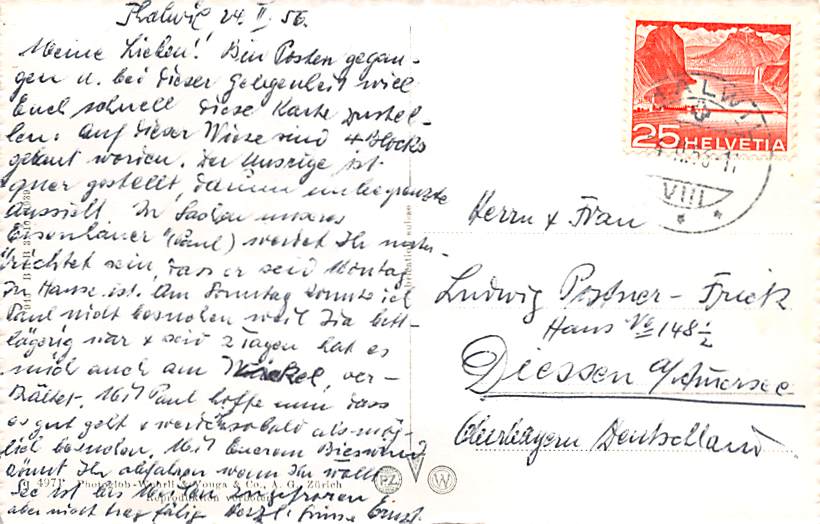 Thalwil 24. II. 56.
Meine Lieben! Bin Posten gegan-
gen u. bei dieser Gelegenheit will
Euch schnell diese Karte zustel-
len. Auf dieser Wiese sind 4 Blocks
gebaut worden. Der Unsrige ist
quer gestellt, darum unbegrenzte
Aussicht. In Sachen unseres
Eisenhauer (Paul) werdet Ihr unter-
richtet sein, dass er seid Montag
zu Hause ist. Am Sonntag konnte ich
Paul nicht besuchen weil Ida bett-
lägrig war & seid 2 Tagen hat es
mich auch am Wickel, ver-
kältet. Mit Paul hoffe nun dass
es gut geht & werde ihn sobald als mög-
lich besuchen. Mit Eurem
könnt Ihr abfahren wenn Ihr wollt
See ist bis zugefroren
aber nicht tragfähig. Herzl. Grüsse Ernst.
4971 Photoglob-Wehrli & Vouga & Co., A. G., Zürich
Reproduktion verboten
PZ
W
25 HELVETIA
THALWIL
VIII
Herrn & Frau
Ludwig Postner-Frick
Haus No 148 1/2
Diessen a/Ammersee
Oberbayern Deutschland